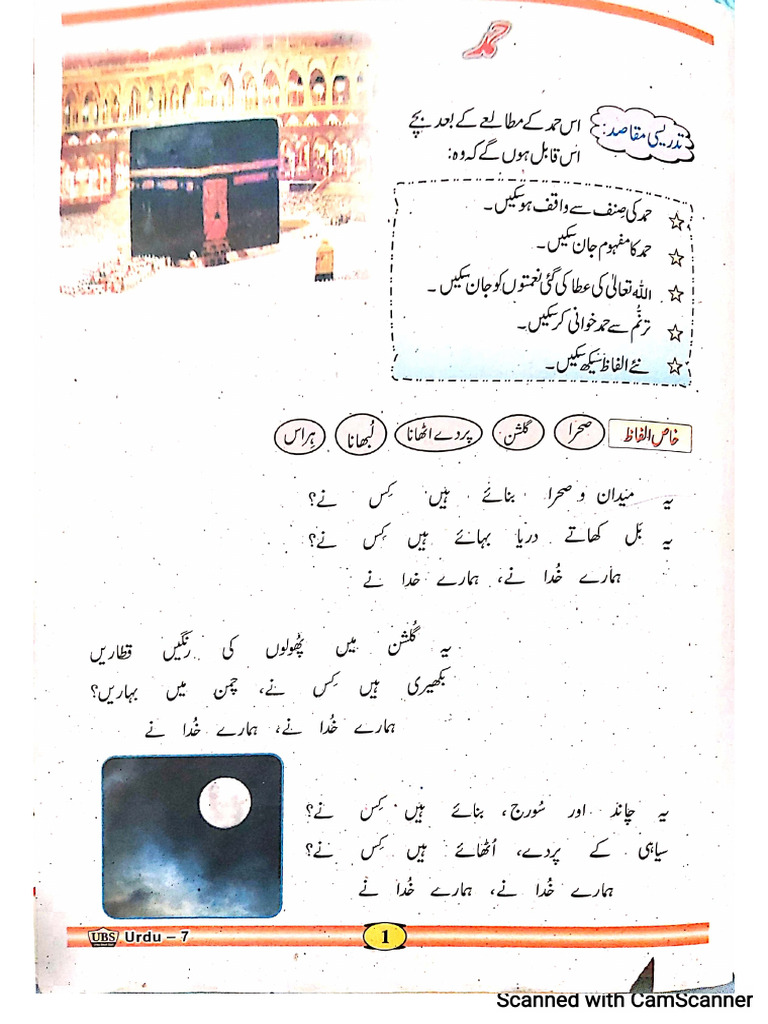 حمد
تدریسی مقاصد:
اس حمد کے مطالعے کے بعد بچے
اس قابل ہوں گے کہ وہ:
☆ حمد کی صنف سے واقف ہوسکیں۔
☆ حمد کا مفہوم جان سکیں۔
☆ اللہ تعالیٰ کی عطا کی گئی نعمتوں کو جان سکیں۔
☆ ترنُّم سے حمد خوانی کرسکیں۔
☆ نئے الفاظ سیکھ سکیں۔
خاص الفاظ صحرا گلشن پردے اٹھانا لُبھانا ہِراس
یہ میدان و صحرا بنائے ہیں کِس نے؟
یہ بَل کھاتے دریا بہائے ہیں کِس نے؟
ہمارے خُدا نے، ہمارے خدا نے
یہ گُلشن میں پُھولوں کی رنگیں قطاریں
بکھیری ہیں کِس نے، چمن میں بہاریں؟
ہمارے خُدا نے، ہمارے خُدا نے
یہ چاند اور سُورج، بنائے ہیں کِس نے؟
سیاہی کے پردے، اُٹھائے ہیں کِس نے؟
ہمارے خُدا نے، ہمارے خُدا نے
UBS Urdu – 7
1
Scanned with CamScanner